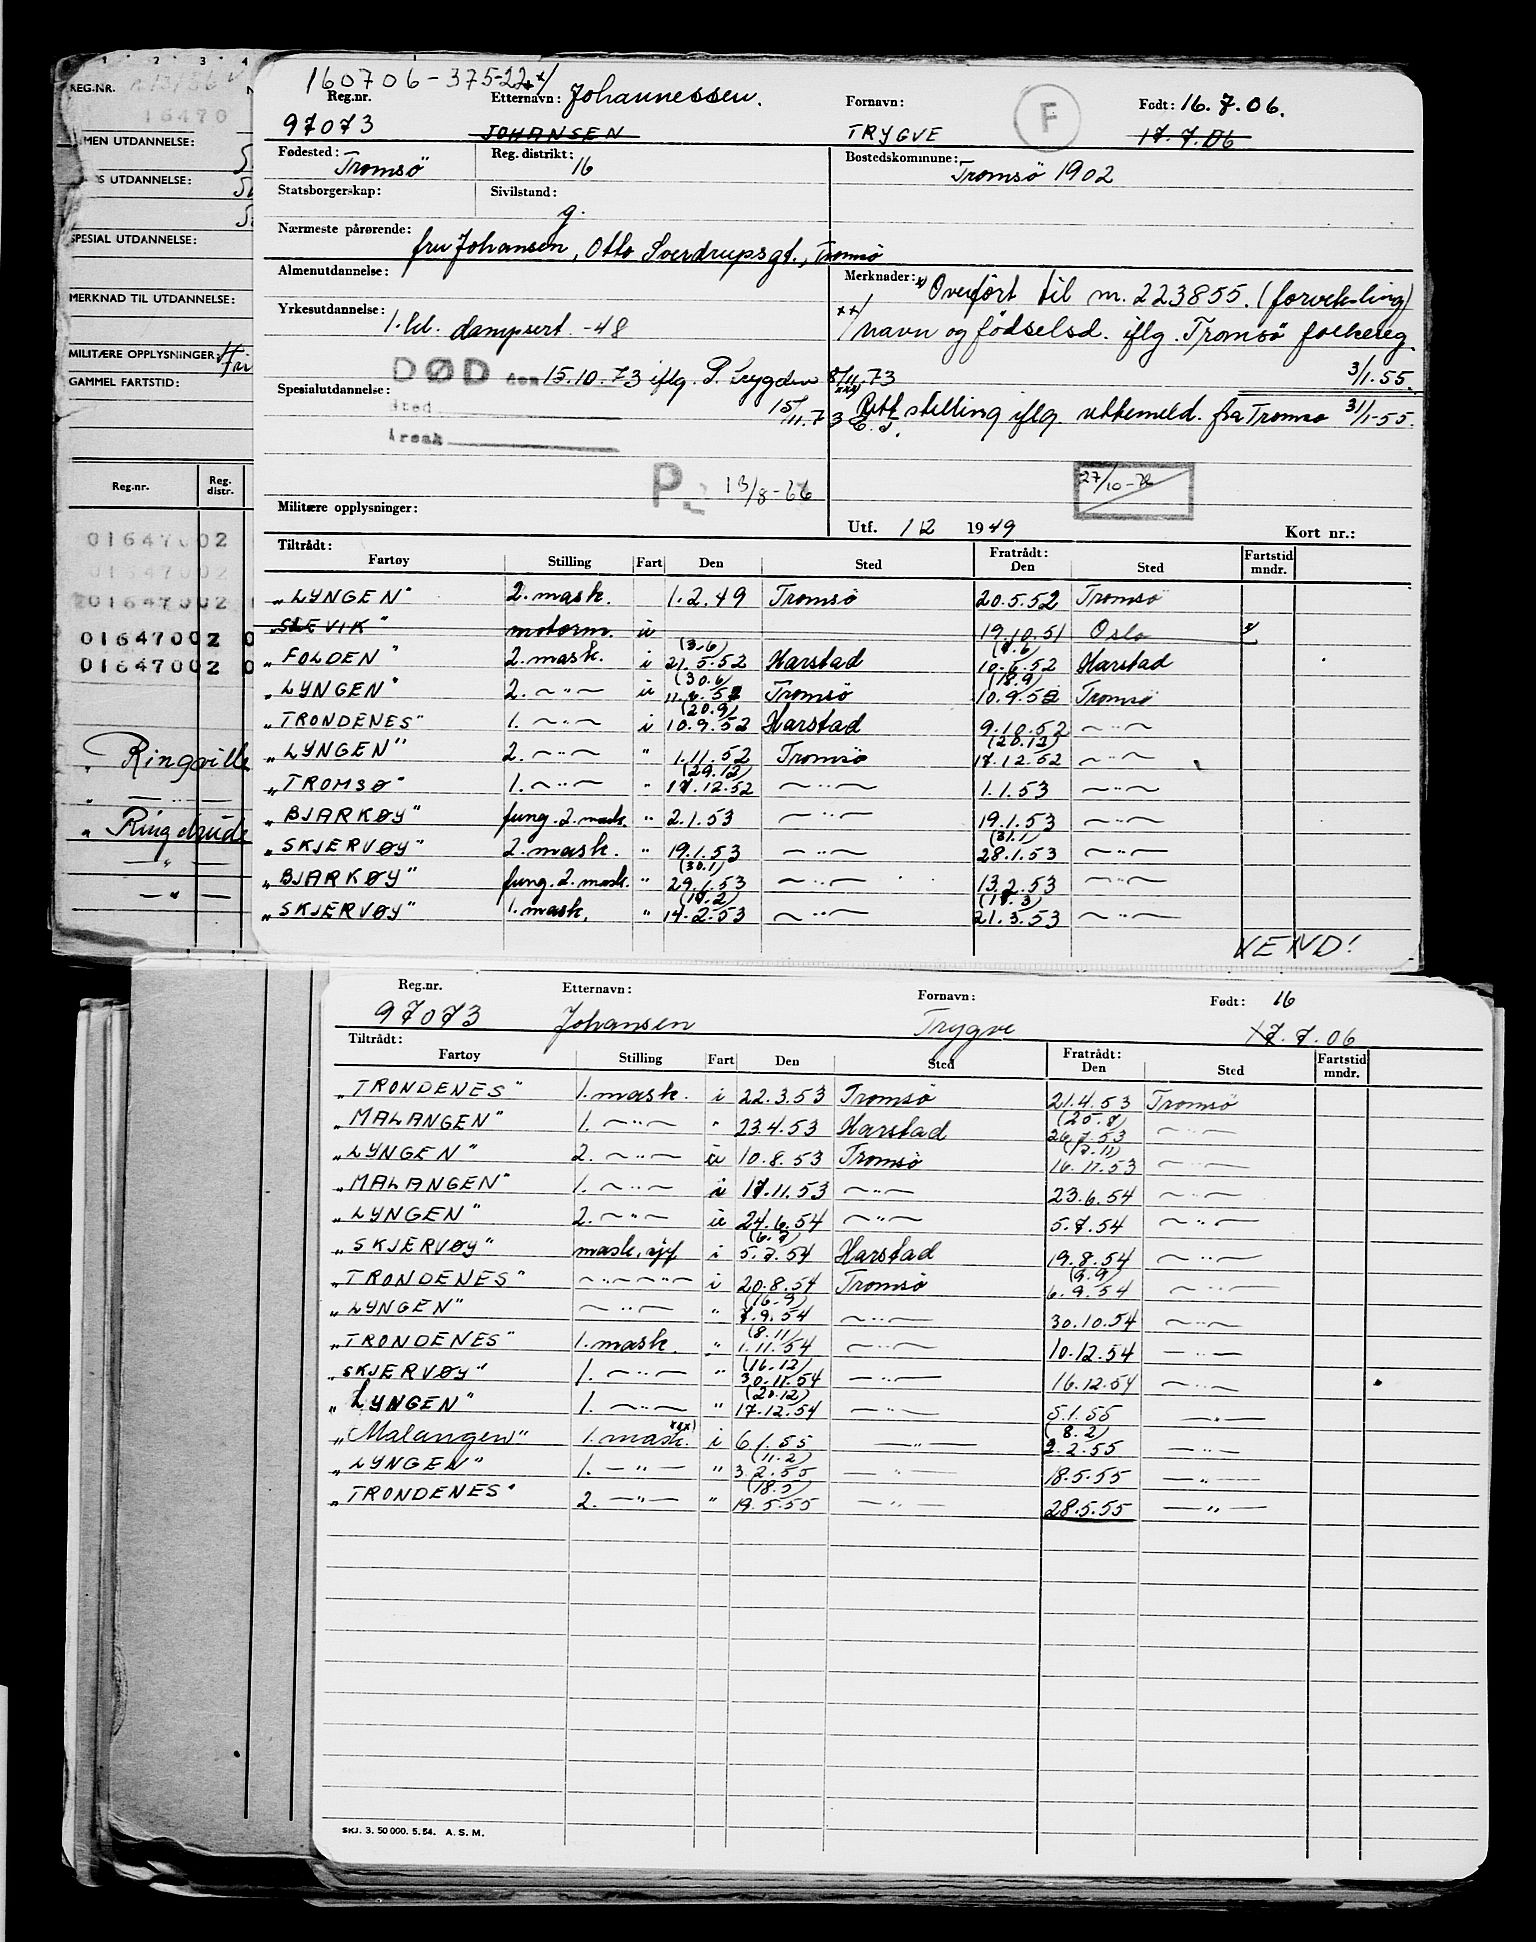 1 2 3 4
REG.NR.
16470
ALMEN UTDANNELSE:
UTDANNELSE:
SPESIAL UTDANNELSE:
MERKNAD TIL UTDANNELSE:
MILITÆRE OPPLYSNINGER:
GAMMEL FARTSTID:
Reg.nr. Reg. distr.
01647002
01647002
01647002
01647002 0
01647002 0
Ringville
" — " —
" Ringdrude
— " —
— " —
160706-375-22 xx/
Reg.nr. Etternavn: Johannessen. Fornavn: F Født: 16.7.06.
97073 JOHANSEN TRYGVE 17.7.06
Fødested: Tromsö Reg. distrikt: 16 Bostedskommune: Tromsö 1902
Statsborgerskap: Sivilstand: g.
Nærmeste pårørende: fru Johansen, Otto Sverdrupsgt., Tromsö
Almenutdannelse: Merknader: x Overfört til nr. 223855. (forveksling)
Yrkesutdannelse: 1. kl. dampsert. -48
xx/ navn og födselsd. iflg. Tromsö folkereg.
3/1.55.
DØD den 15.10.73 iflg. P. 8/11.73
Spesialutdannelse:
sted
15/11.73
xxx/ Rett stilling iflg. uttemeld. fra Tromsø 31/1-55.
årsak
P 13/8-66
27/10-72
Militære opplysninger:
Utf. 1/2 1949 Kort nr.:
Tiltrådt: Fratrådt: Fartstid
Fartøy Stilling Fart Den Sted Den Sted mndr.
"LYNGEN" 2. mask. 1.2.49 Tromsö 20.5.52 Tromsö
"SLEVIK" motorm. u 19.10.51 Oslo x/
(3.6) (7.6)
"FOLDEN" 2. mask. i 21.5.52 Harstad 10.6.52 Harstad
(30.6) (18.9)
"LYNGEN" 2. —"— u 11.6.52 Tromsö 10.9.52 Tromsö
(20.9)
"TRONDENES" 1. —"— i 10.9.52 Harstad 9.10.52 —"—
(28.12)
"LYNGEN" 2. —"— " 1.11.52 Tromsö 17.12.52 —"—
(29.12)
"TROMSØ" 1. —"— " 17.12.52 —"— 1.1.53 —"—
"BJARKØY" fung. 2. mask. " 2.1.53 —"— 19.1.53 —"—
(31.1)
"SKJERVØY" 2. mask. " 19.1.53 —"— 28.1.53 —"—
(30.1)
"BJARKØY" fung. 2. mask. " 29.1.53 —"— 13.2.53 —"—
(17.2) (17.3)
"SKJERVØY" 1. mask. " 14.2.53 —"— 21.3.53 —"—
VEND!
Reg.nr. Etternavn: Fornavn: Født: 16
97073 Johansen Trygve 17.7.06
Tiltrådt: Fratrådt: Fartstid
Fartøy Stilling Fart Den Sted Den Sted mndr.
"TRONDENES" 1. mask. i 22.3.53 Tromsö 21.4.53 Tromsö
(25.7)
"MALANGEN" 1. —"— " 23.4.53 Harstad 26.7.53 —"—
(17.11)
"LYNGEN" 2. —"— u 10.8.53 Tromsö 16.11.53 —"—
"MALANGEN" 1. —"— i 17.11.53 —"— 23.6.54 —"—
"LYNGEN" 2. —"— u 24.6.54 —"— 5.7.54 —"—
(6.7)
"SKJERVØY" mask. sjef i 5.7.54 Harstad 19.8.54 —"—
(9.9)
"TRONDENES" —"—"— i 20.8.54 Tromsö 6.9.54 —"—
(16.9)
"LYNGEN" —"— " 7.9.54 —"— 30.10.54 —"—
(8.11)
"TRONDENES" 1. mask. " 1.11.54 —"— 10.12.54 —"—
(16.12)
"SKJERVØY" 1. —"— " 30.11.54 —"— 16.12.54 —"—
(20.12)
"LYNGEN" 1. —"— " 17.12.54 —"— 5.1.55 —"—
(8.2)
"Malangen" 1. mask. xxx) i 6.1.55 —"— 2.2.55 —"—
(11.2)
"LYNGEN" 1. —"— " 3.2.55 —"— 18.5.55 —"—
(18.5)
"TRONDENES" 2. —"— " 19.5.55 —"— 28.5.55 —"—
SKJ. 3. 50 000. 5. 54. A. S. M.